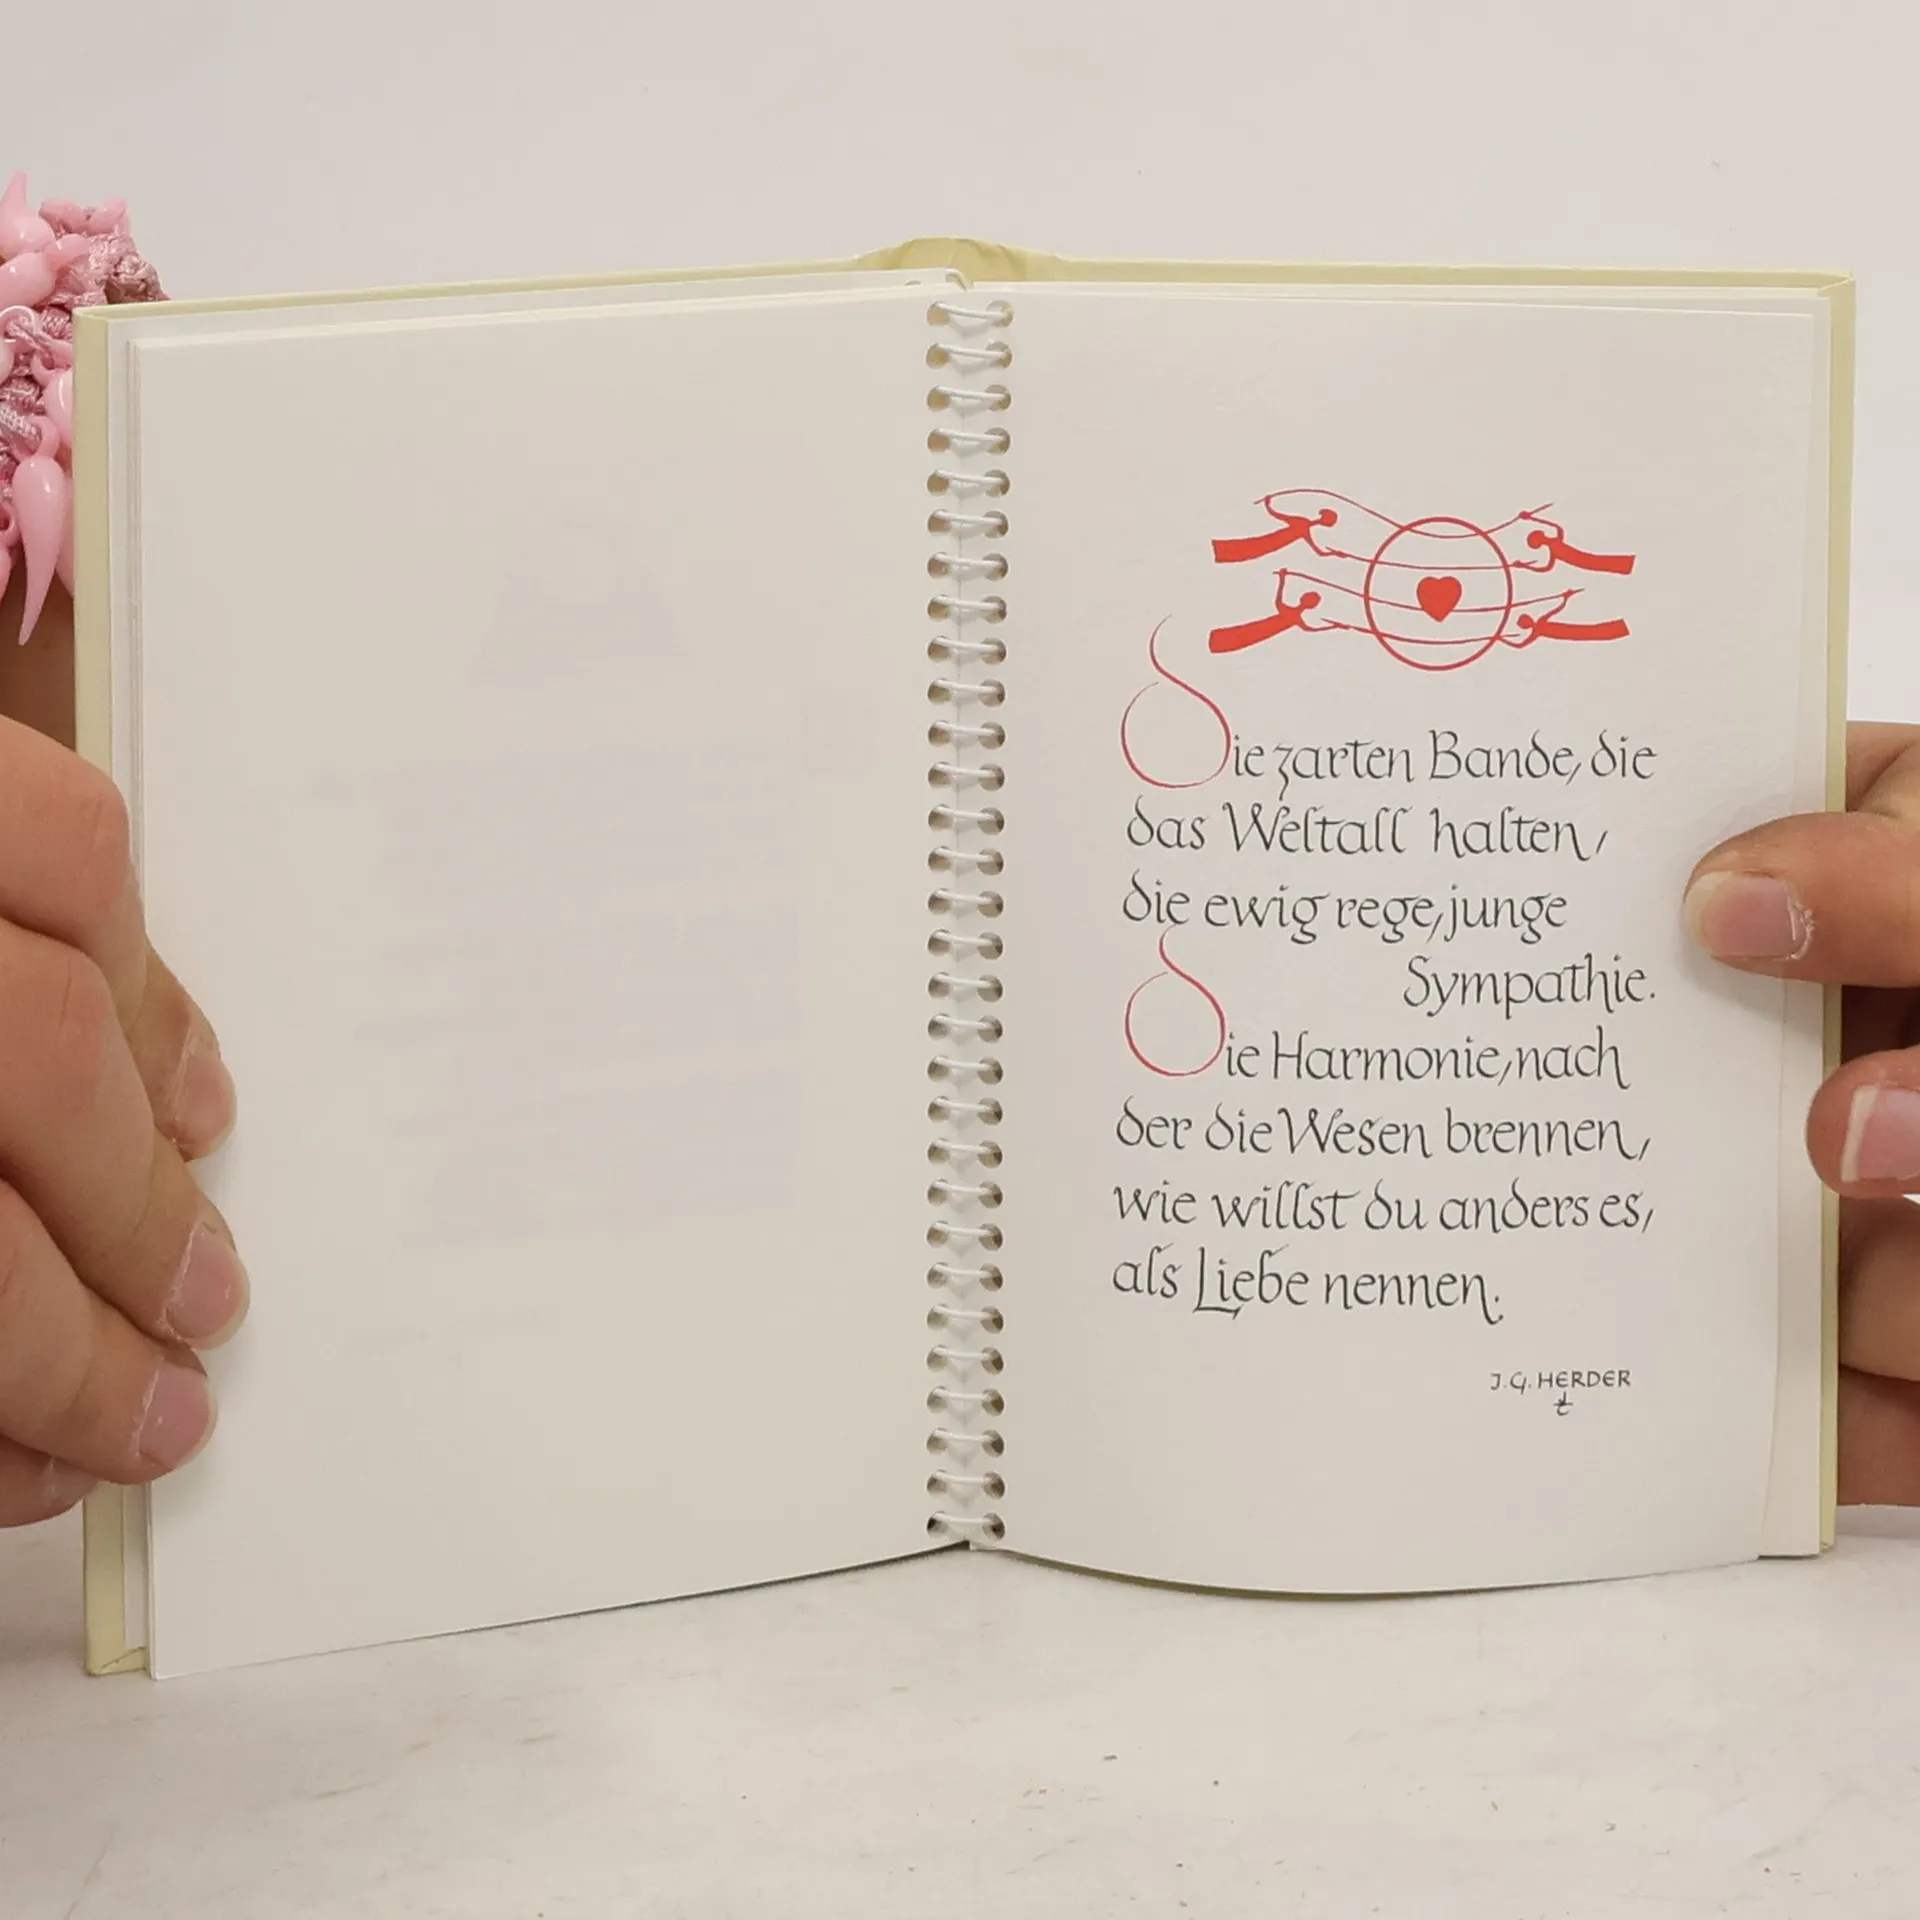 Die zarten Bande, die
das Weltall halten,
die ewig rege, junge
Sympathie.
Die Harmonie, nach
der die Wesen brennen,
wie willst du anders es,
als Liebe nennen.
J. G. HERDER